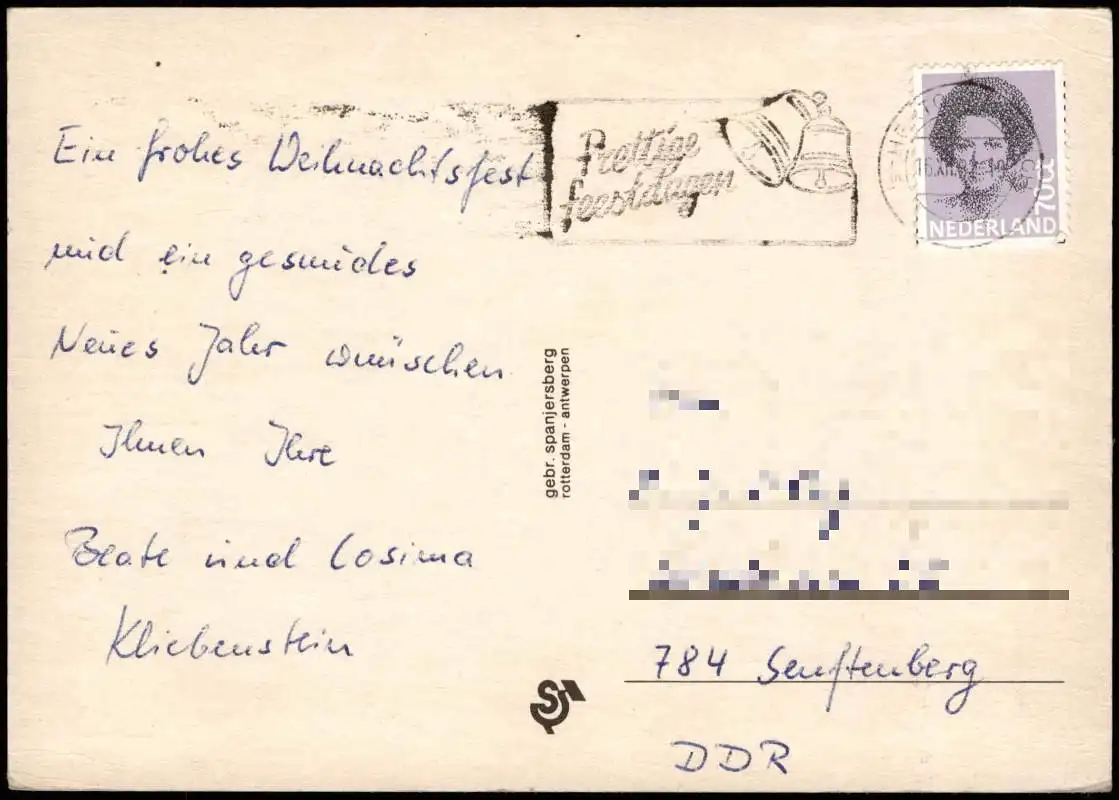 Ein frohes Weihnachtsfest
und ein gesundes
Neues Jahr wünschen
Ihnen Ihre
Beate und Cosima
Kliebenstein
Prettige
feestdagen
70ct
NEDERLAND
gebr. spanjersberg
rotterdam - antwerpen
784 Senftenberg
DDR